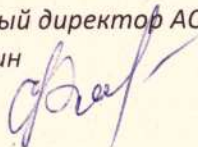 ый директор АС
ин